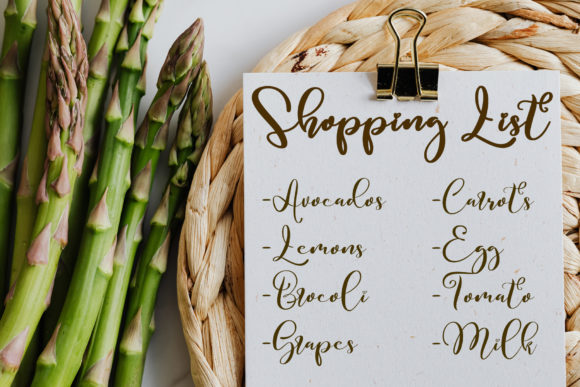 Shopping List
-Avocados
-Lemons
-Brocoli
-Grapes
-Carrots
-Egg
-Tomato
-Milk